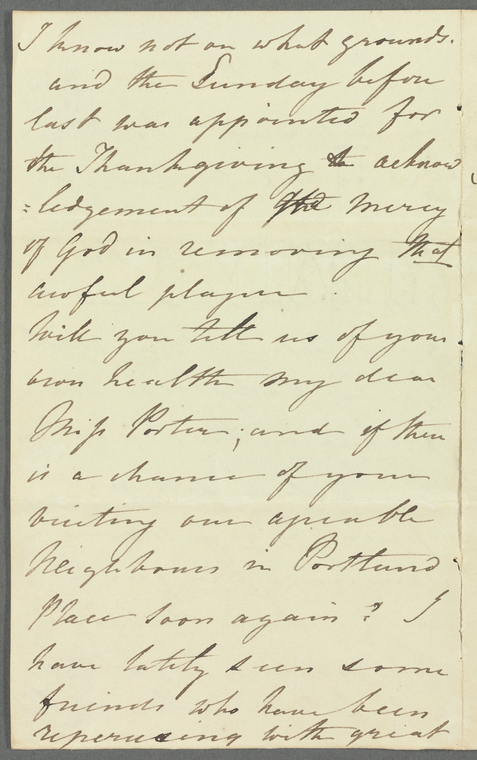 I know not on what grounds.
and the Sunday before
last was appointed for
the Thanksgiving & acknow
=ledgement of the Mercy
of God in removing that
awful plague.
Will you tell us of your
own health my dear
Miss Porter; and if there
is a chance of your
visiting our agreable
Neighbours in Portland
Place soon again? I
have lately seen some
friends who have been
reperuseing with great